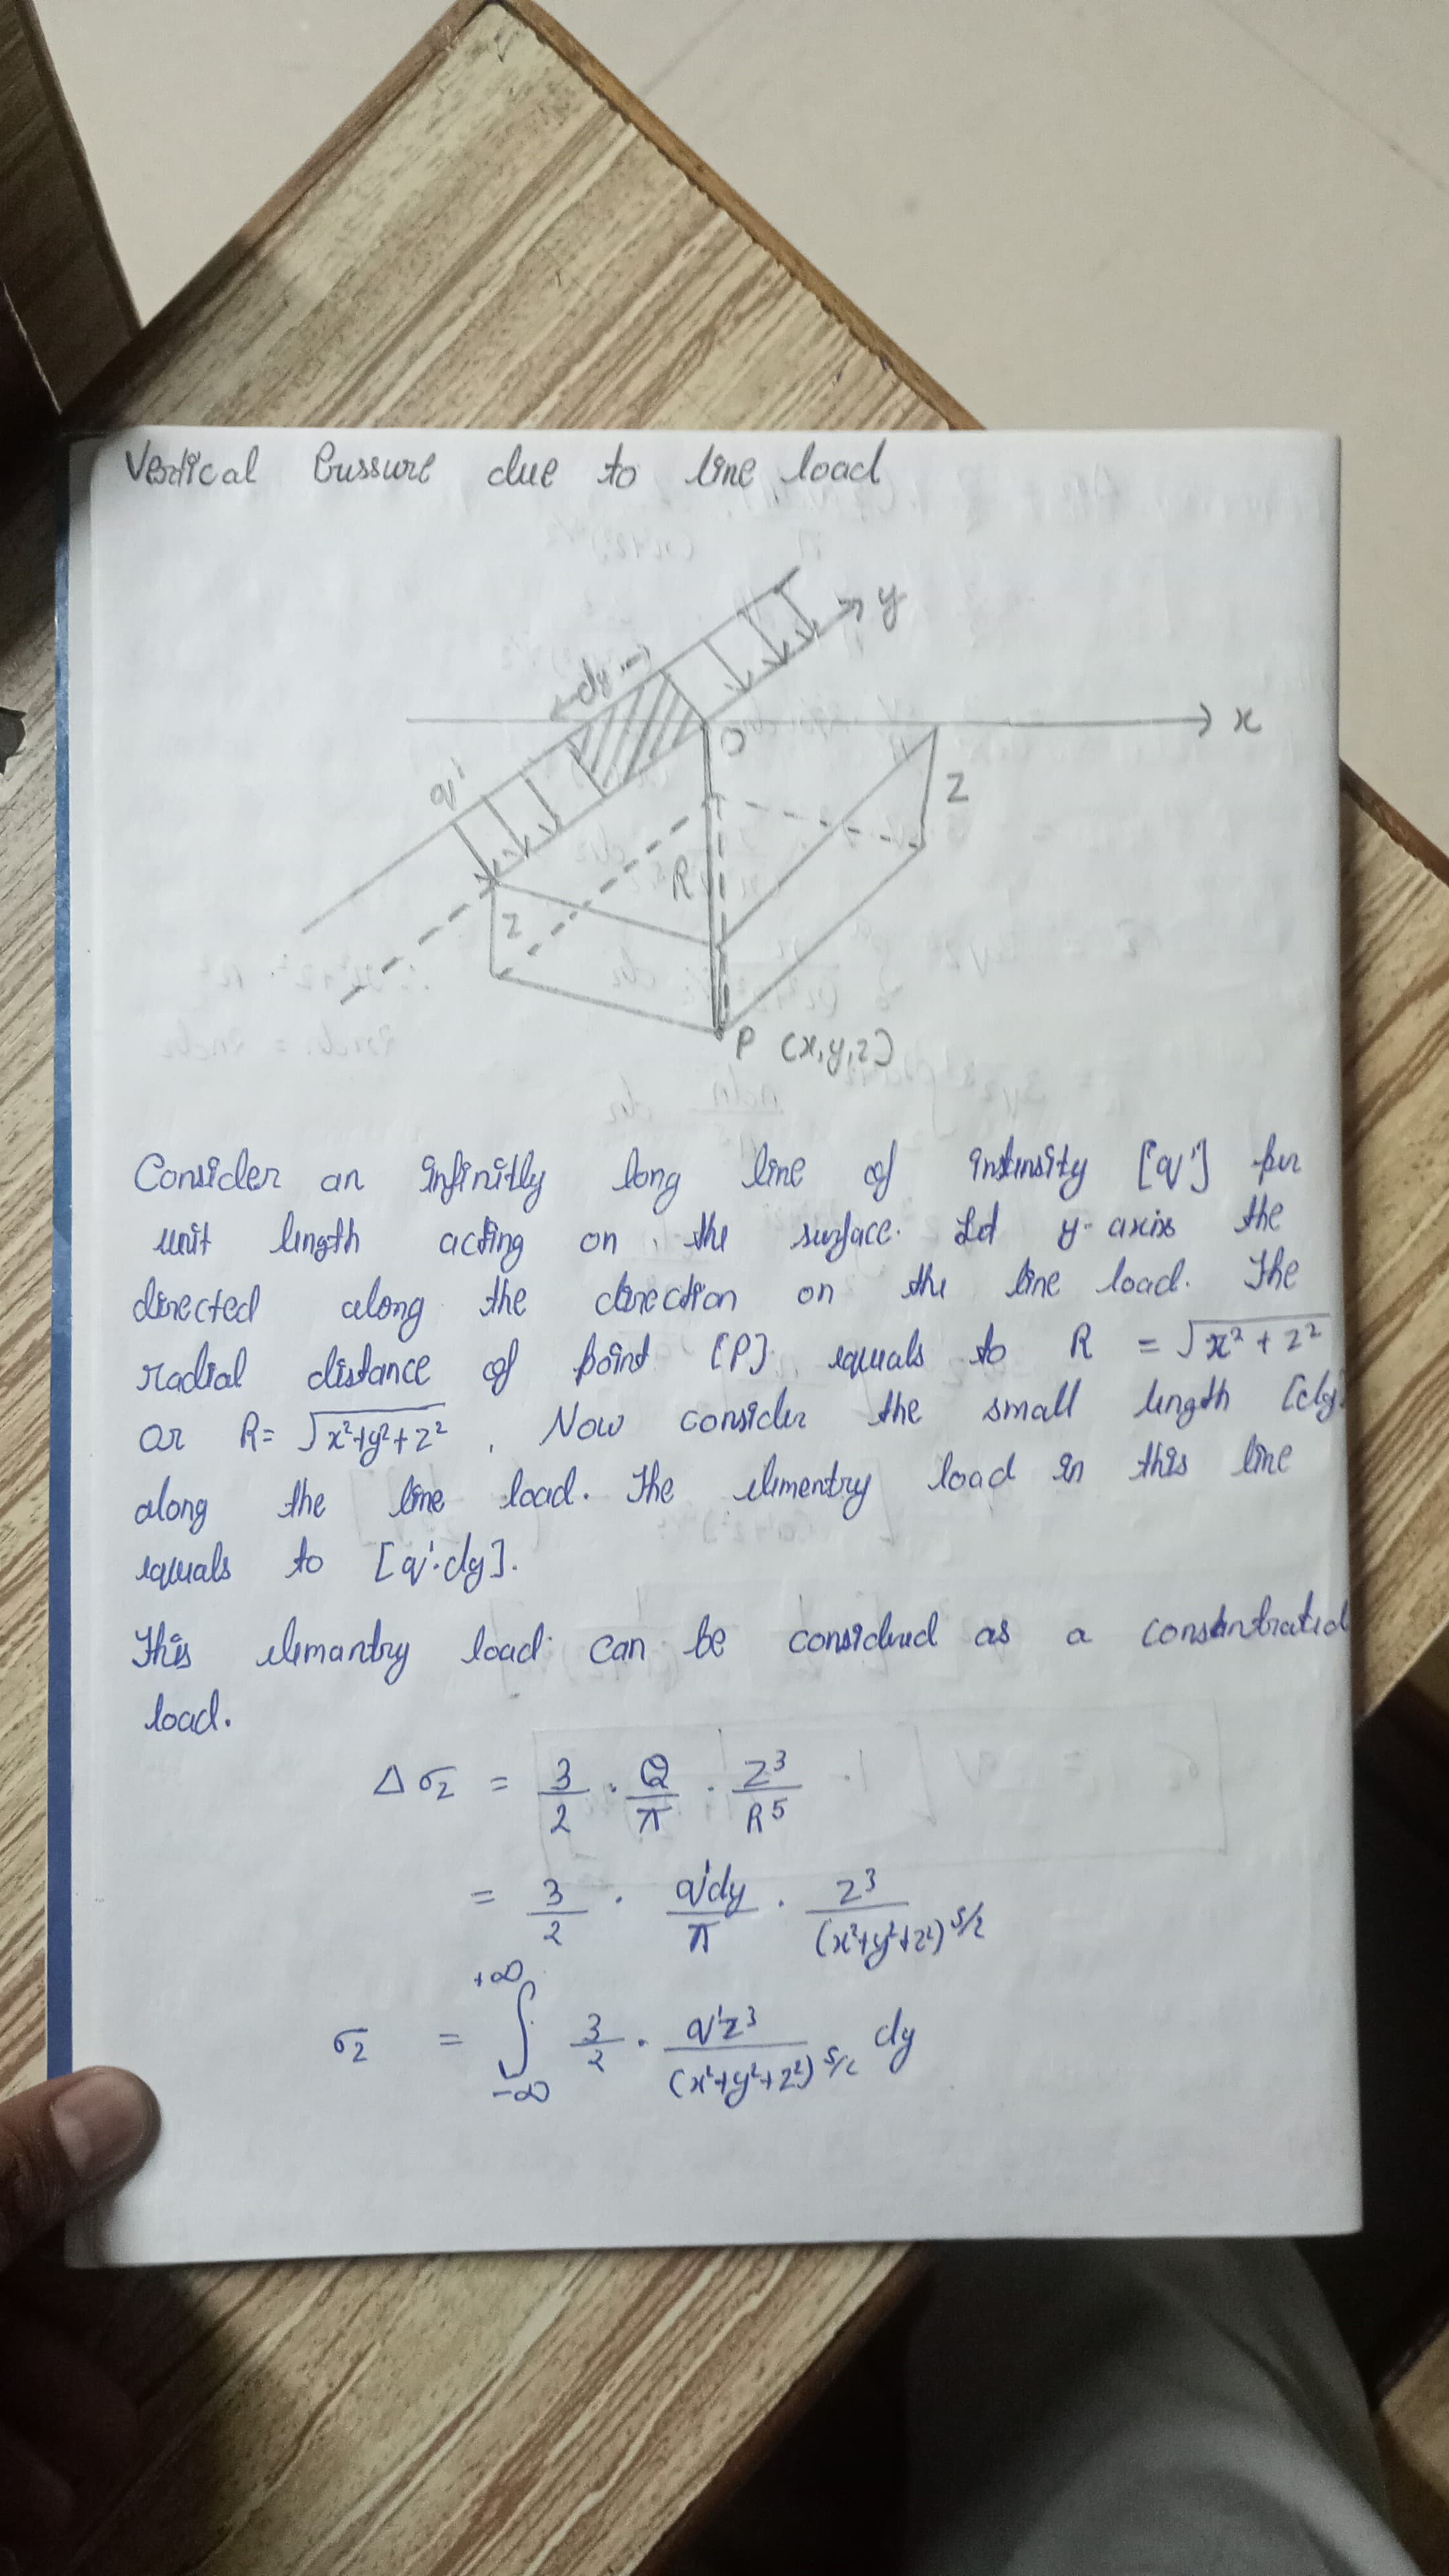 Vertical Pressure due to line load
y
dy
x
O
q'
Z
R
Z
P (x,y,z)
Consider an infinitly long line of intensity [q'] per
unit length acting on the surface. Let y-axis the
directed along the direction on the line load. The
radial distance of point [P] equals to R = √x² + z²
or R= √x²+y²+z² , Now consider the small length [dy]
along the line load. The elementry load in this line
equals to [q'.dy].
This elemantry load can be considered as a consentrated
load.
Δσz = 3/2 . Q/π . Z³/R⁵
= 3/2 . q'dy/π . Z³/(x²+y²+z²)^5/2
σz = ∫ +∞ -∞ 3/2 . q'z³/(x²+y²+z²)^5/2 dy